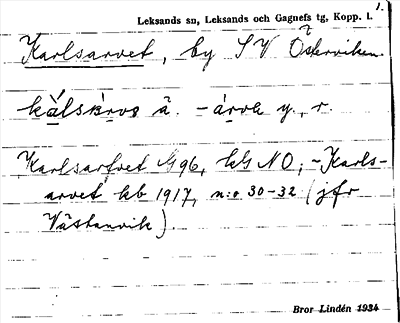 1.
Leksands sn, Leksands och Gagnefs tg, Kopp. l.
Karlsarvet, by SV Österviken.
å. -árvɐ y., r.
Karlsarfvet G96, hG NO; ~Karls-
arvet kb 1917, n:o 30-32 (jfr
Västanvik).
Bror Lindén 1934